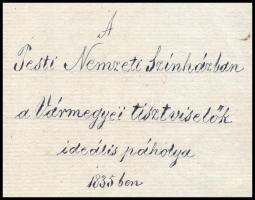 A
Pesti Nemzeti Színházban
a Vármegyei tisztviselők
ideális páholya
1835 ben